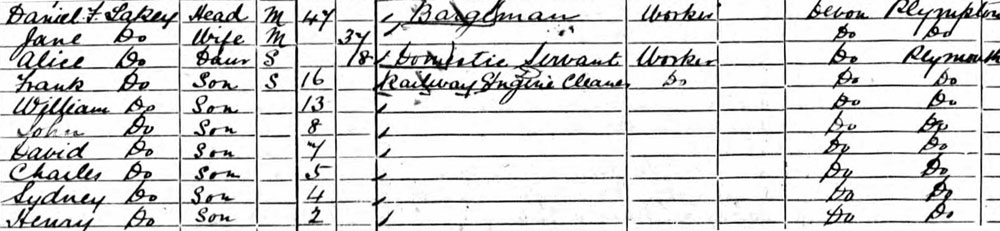 Daniel F Lakey Head M 47 Bargeman Worker Devon Plympton
Jane Do Wife M 37 Do Do
Alice Do Daur S 18 Domestic Servant Worker Do Plymouth
Frank Do Son S 16 Railway Engine Cleaner Do Do Do
William Do Son 13 Do Do
John Do Son 8 Do Do
David Do Son 7 Do Do
Charles Do Son 5 Do Do
Sydney Do Son 4 Do Do
Henry Do Son 2 Do Do